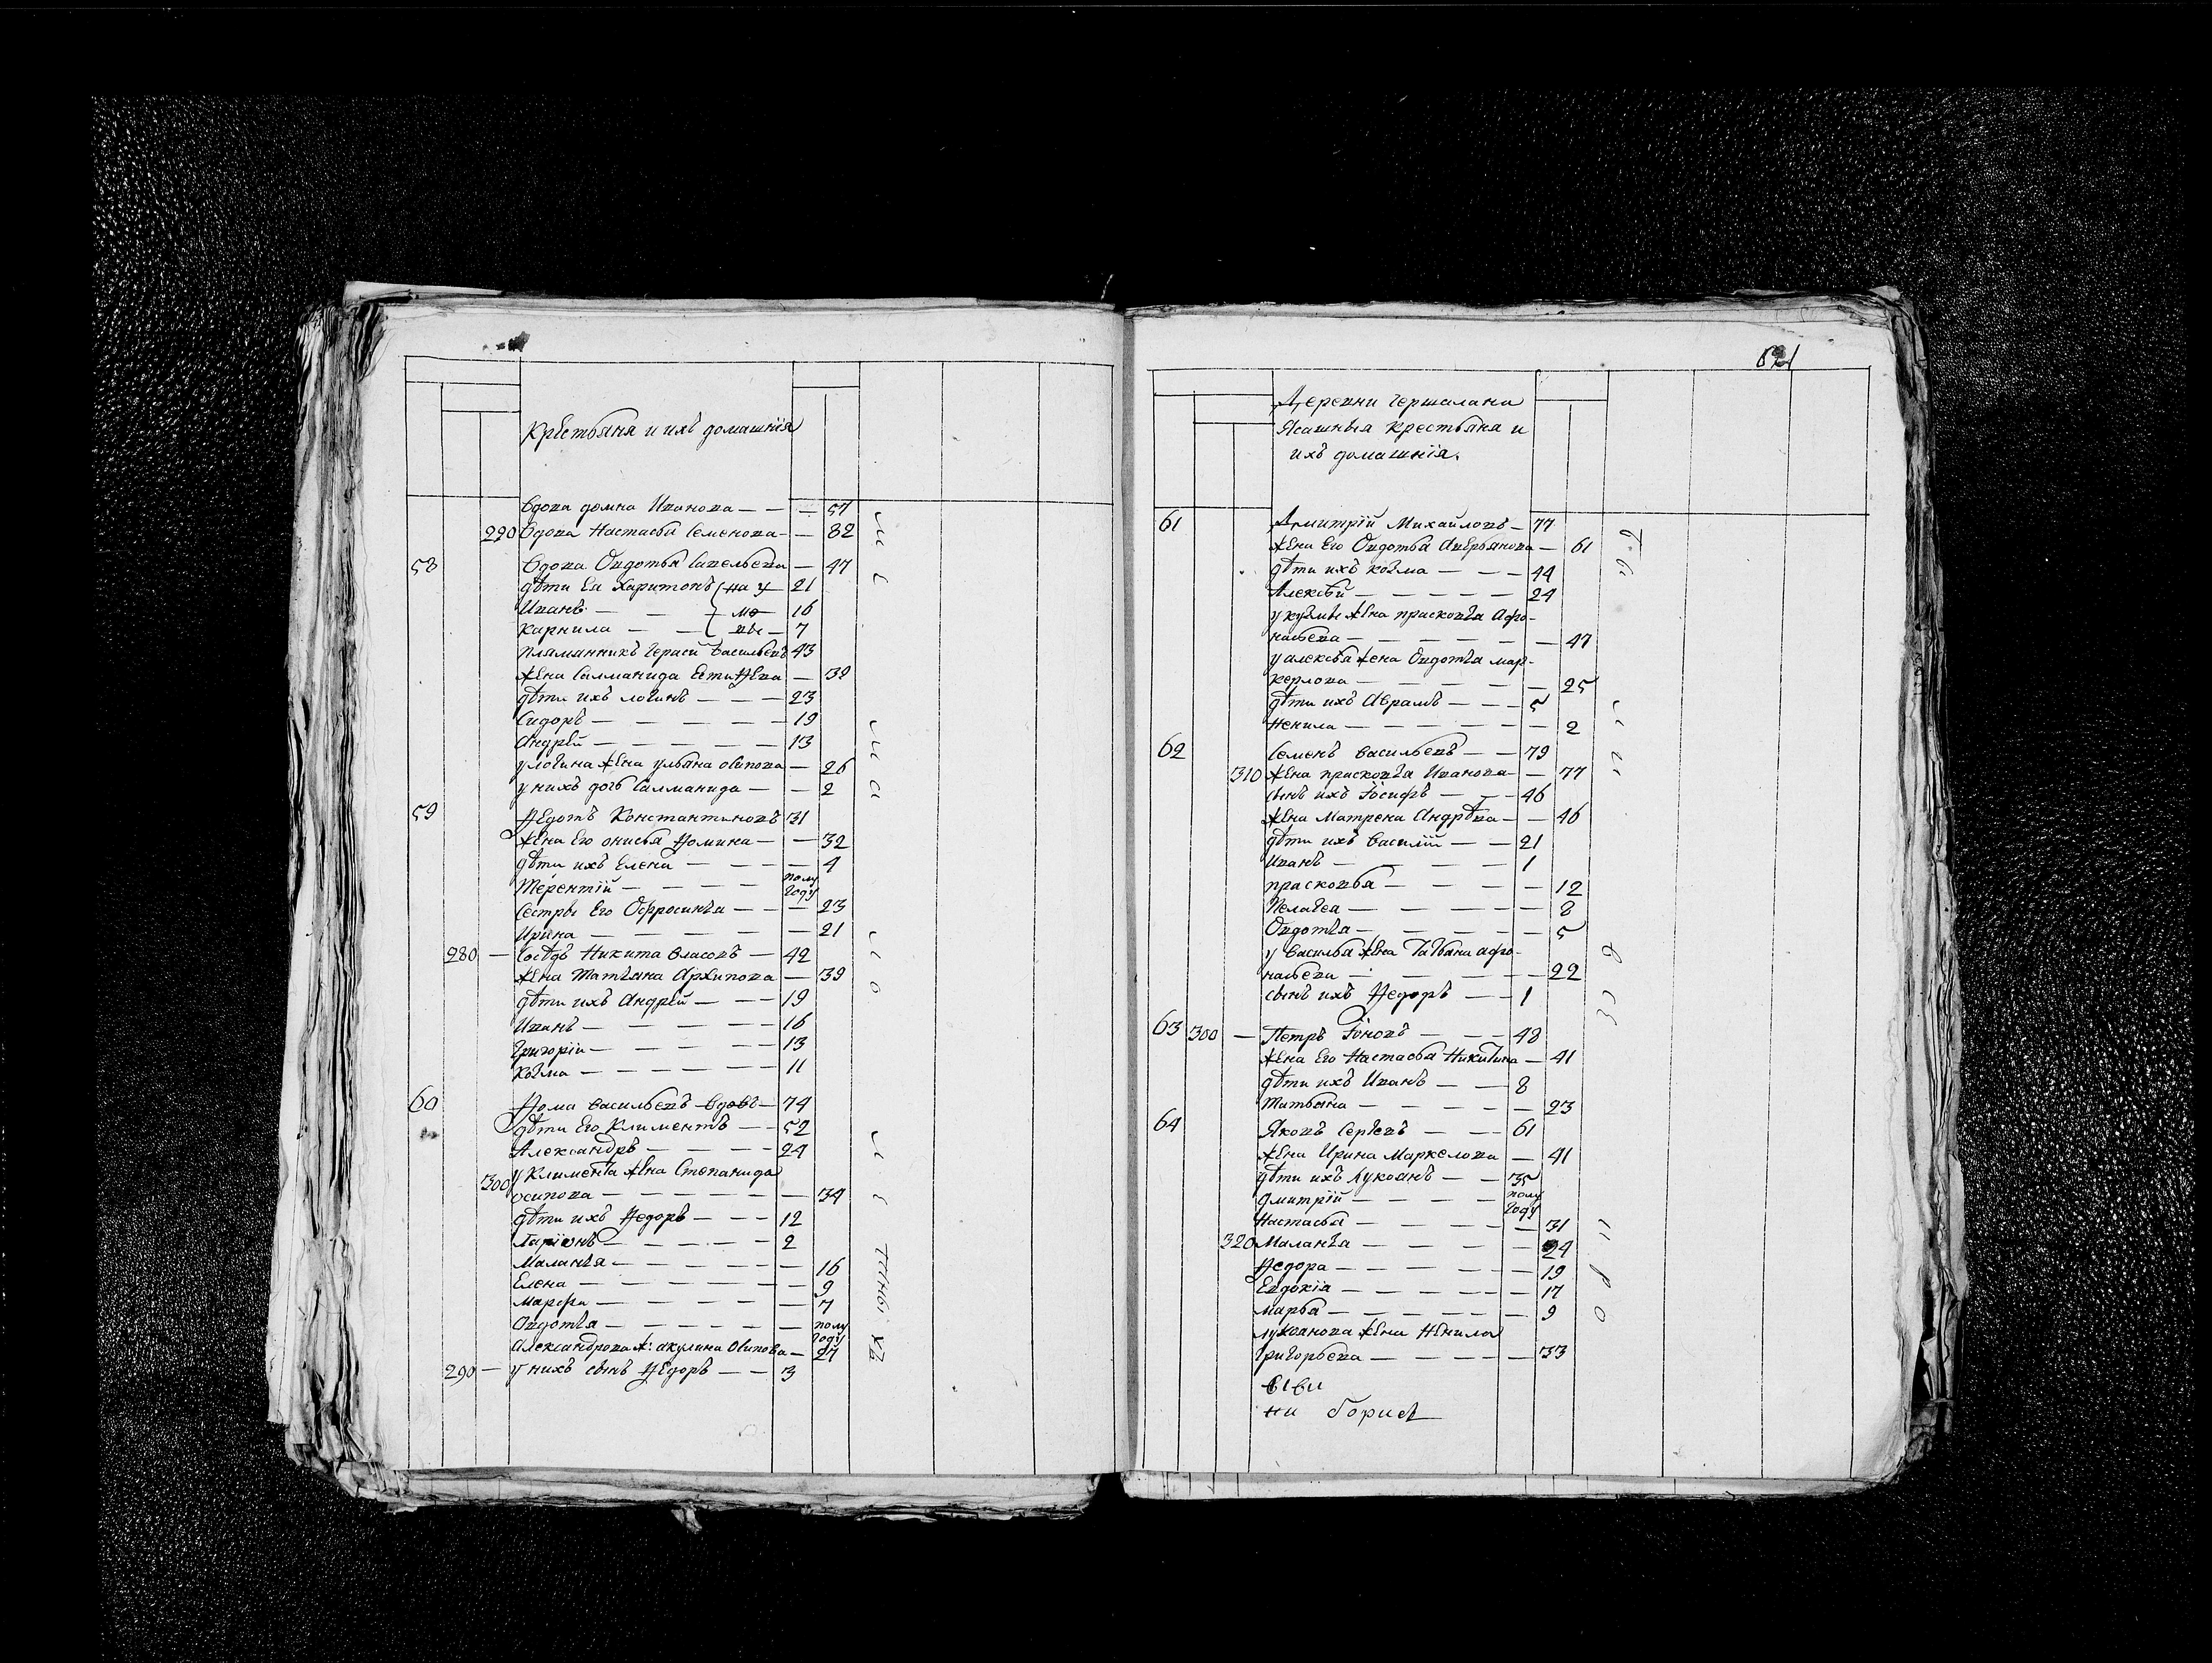 Крестьяня и ихъ домашнія
Вдова домна Иванова — 57
290 Вдова Настасья Семенова — 82
58 Вдова Овдотья Савельева — 47
дѣти Ея Харитонъ на у 21
Иванъ — мо 16
Карнила — вы 7
пляманникъ Герасй Васильевъ 43
жена Салманида — 39
дѣти ихъ логинъ — 23
Сидоръ — 19
Андрѣй — 13
улогина жена ульяна Осипова — 26
унихъ дочь Салманида — 2
59 Ѳедотъ Константиновъ 31
жена Его онисья Ѳомина — 32
дѣти ихъ Елена — 4
Терентій — полу году
Сестры Его Офросинья — 23
Ирина — 21
280 — Сосѣдъ Никита Власовъ — 42
жена Татьяна Архипова — 39
дѣти ихъ Андрѣй — 19
Иванъ — 16
Григоріи — 13
Козма — 11
60 Ѳома Васильевъ вдовъ — 74
дѣти Его Климентъ — 52
Александръ — 24
300 у Климента жена Степанида
осипова — 34
дѣти ихъ Ѳедоръ — 12
Ларіонъ — 2
Маланья — 16
Елена — 9
Марфа — 7
Овдотья — полу году
Александрова ж: акулина Осипова — 27
290 — у нихъ сынъ Ѳедоръ — 3
Деревни Чершалани
Ясашныя крестьяна и
ихъ домашнія.
61 Дмитрій Михайловъ — 77
жена Его Овдотья Аверьянова — 61
дѣти ихъ козма — 44
Алексѣй — 24
у кузмы жена прасковья Афо-
насьева — 47
у алексѣя жена Овдотья мар-
керлова — 25
дѣти ихъ Аврамъ — 5
Ненила — 2
62 Семенъ Васильевъ — 79
310 жена прасковья Иванова — 77
сынъ ихъ Іосифъ — 46
жена Матрена Андрѣва — 46
дѣти ихъ Василій — 21
Иванъ — 1
прасковья — 12
Пелагея — 8
Овдотья — 5
у Василья жена Татьяна афо-
насьева — 22
сынъ ихъ Ѳедоръ — 1
63 300 — Петръ Іоновъ — 48
жена Его Настасья Никитина — 41
дѣти ихъ Иванъ — 8
Татьяна — 23
64 Яковъ Сергѣевъ — 61
жена Ирина Маркелова — 41
дѣти ихъ Лукоянъ — 35
дмитрій — полу году
Настасья — 31
320 Маланья — 24
Ѳедора — 19
Евдокія — 17
марья — 9
лукоянова жена Ненила
Григорьева — 33
ни борисъ